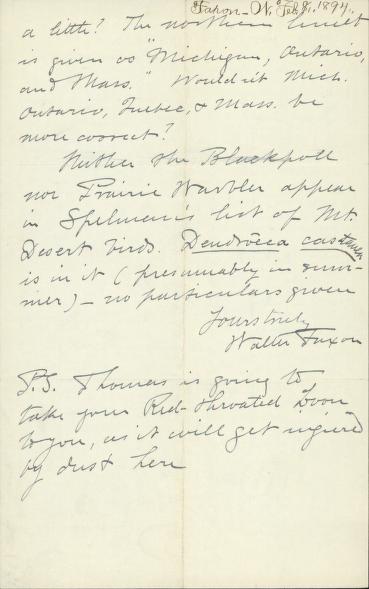 Faxon - W. Feb. 8, 1894.
a little? The northern limit
is given as "Michigan, Ontario,
and Mass." Would it Mich.
Ontario, Quebec, & Mass. be
more correct?
Neither the Blackpoll
nor Prairie Warbler appear
in Spelman's list of Mt.
Desert birds. Dendroeca castanea
is in it (presumably in sum-
mer) - no particulars given
Yours truly
Walter Faxon
P.S. Thomas is going to
take your Red-throated Loon
to you, as it will get injured
by dust here